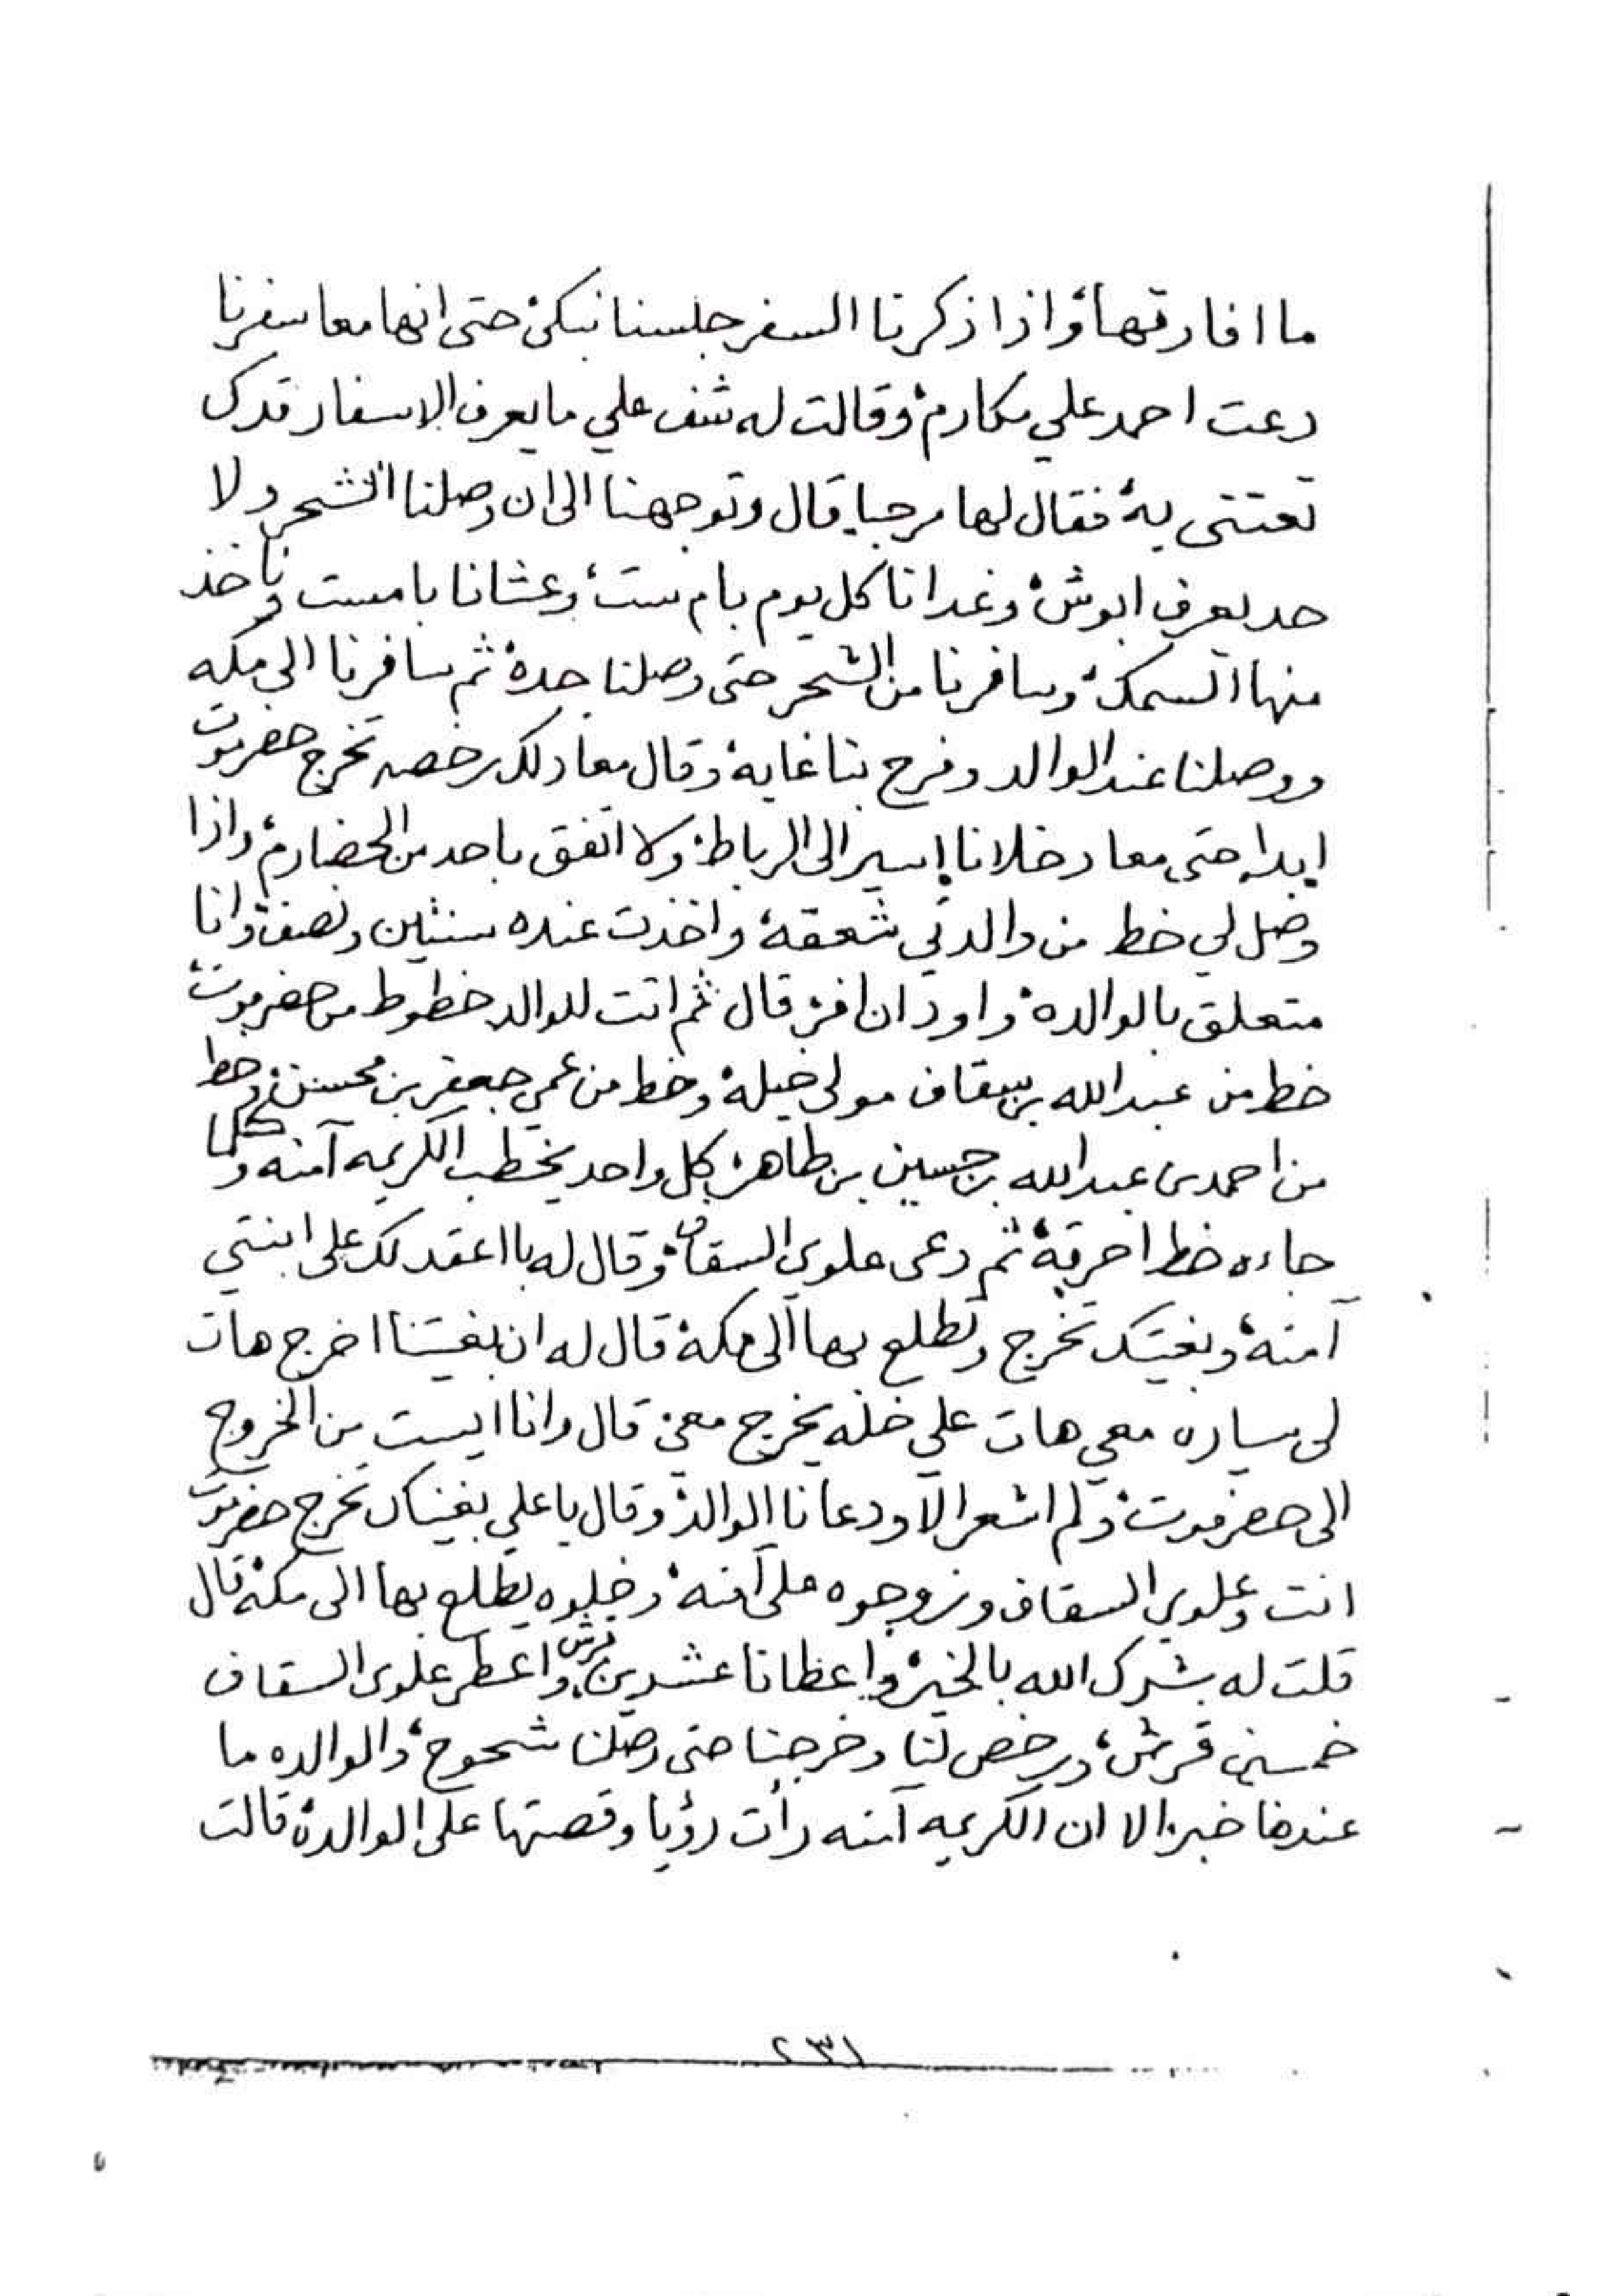 ما افارقها، واذا ذكرنا السفر جلسنا نبكي، حتى انها معا سفرنا
دعت احمد علي مكارم، وقالت له شف علي ما يعرف الاسفار قدك
تعتني به، فقال لها مرحبا، قال وتوجهنا الى ان وصلنا الشحر ولا
حد يعرف ابوش، وغدانا كل يوم بام ست، وعشانا بامست وناخذ
منها السمك، وسافرنا من الشحر حتى وصلنا جدة، ثم سافرنا الى مكه
ووصلنا عند الوالد وفرح بنا غاية، وقال معاد لك رخصه تخرج حضرموت
ابدا، حتى معاد خلانا اسير الى الرباط، ولا اتفق باحد من الحضارم، واذا
وصل لي خط من والدتي شعقه، واخذت عنده سنتين ونصف، وانا
متعلق بالوالده، واود ان افر، قال ثم اتت للوالد خطوط من حضرموت،
خط من عبدالله بن سقاف مولى خيله، وخط من عمي جعفر بن محسن، وخط
من احمد بن عبدالله بن حسين بن طاهر، كل واحد يخطب الكريمه آمنه وكلما
جاءه خط احرقه، ثم دعى علوي السقاف، وقال له با اعقد لك على ابنتي
آمنة، وبغيتك تخرج وتطلع بها الى مكة، قال له ان بغيتنا اخرج هات
لي سياره معي هات علي خله يخرج معي، قال وانا ايست من الخروج
الى حضرموت، ولم اشعر الا ودعانا الوالد، وقال يا علي بغيناك تخرج حضرموت
انت وعلوي السقاف وزوجوه على آمنه، وخلوه يطلع بها الى مكة، قال
قلت له بشرك الله بالخير، واعطانا عشرين قرش، واعطى علوي السقاف
خمسين قرش، ورخص لنا وخرجنا حتى وصلنا شحوح، والوالده ما
عندها خبر، الا ان الكريمه آمنه رأت رؤيا وقصتها على الوالدة، قالت
٢٣١